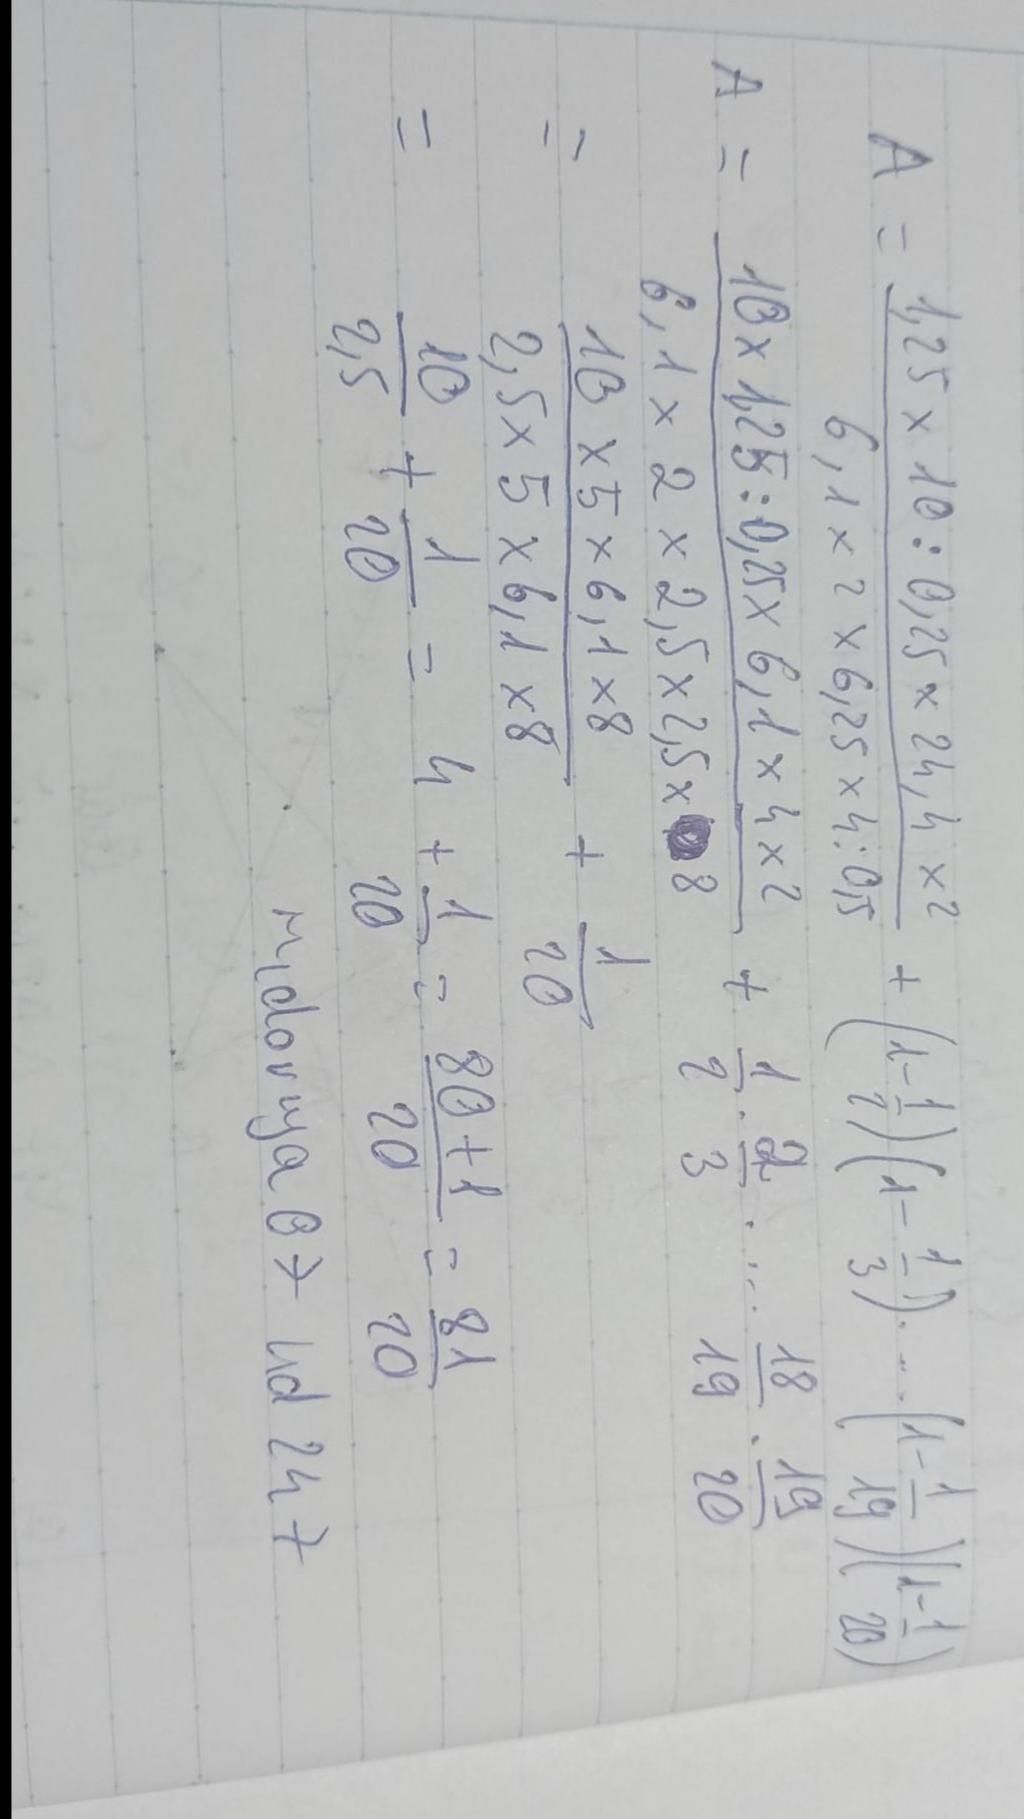 A = \frac{1,25 x 10 : 0,25 x 24,4 x 2}{6,1 x 2 x 6,25 x 4 : 0,5} + (1 - \frac{1}{2})(1 - \frac{1}{3}) . ... (1 - \frac{1}{19})(1 - \frac{1}{20})
A = \frac{10 x 1,25 : 0,25 x 6,1 x 4 x 2}{6,1 x 2 x 2,5 x 2,5 x 8} + \frac{1}{2} . \frac{2}{3} . ... \frac{18}{19} . \frac{19}{20}
= \frac{10 x 5 x 6,1 x 8}{2,5 x 5 x 6,1 x 8} + \frac{1}{20}
= \frac{10}{2,5} + \frac{1}{20} = 4 + \frac{1}{20} = \frac{80 + 1}{20} = \frac{81}{20}